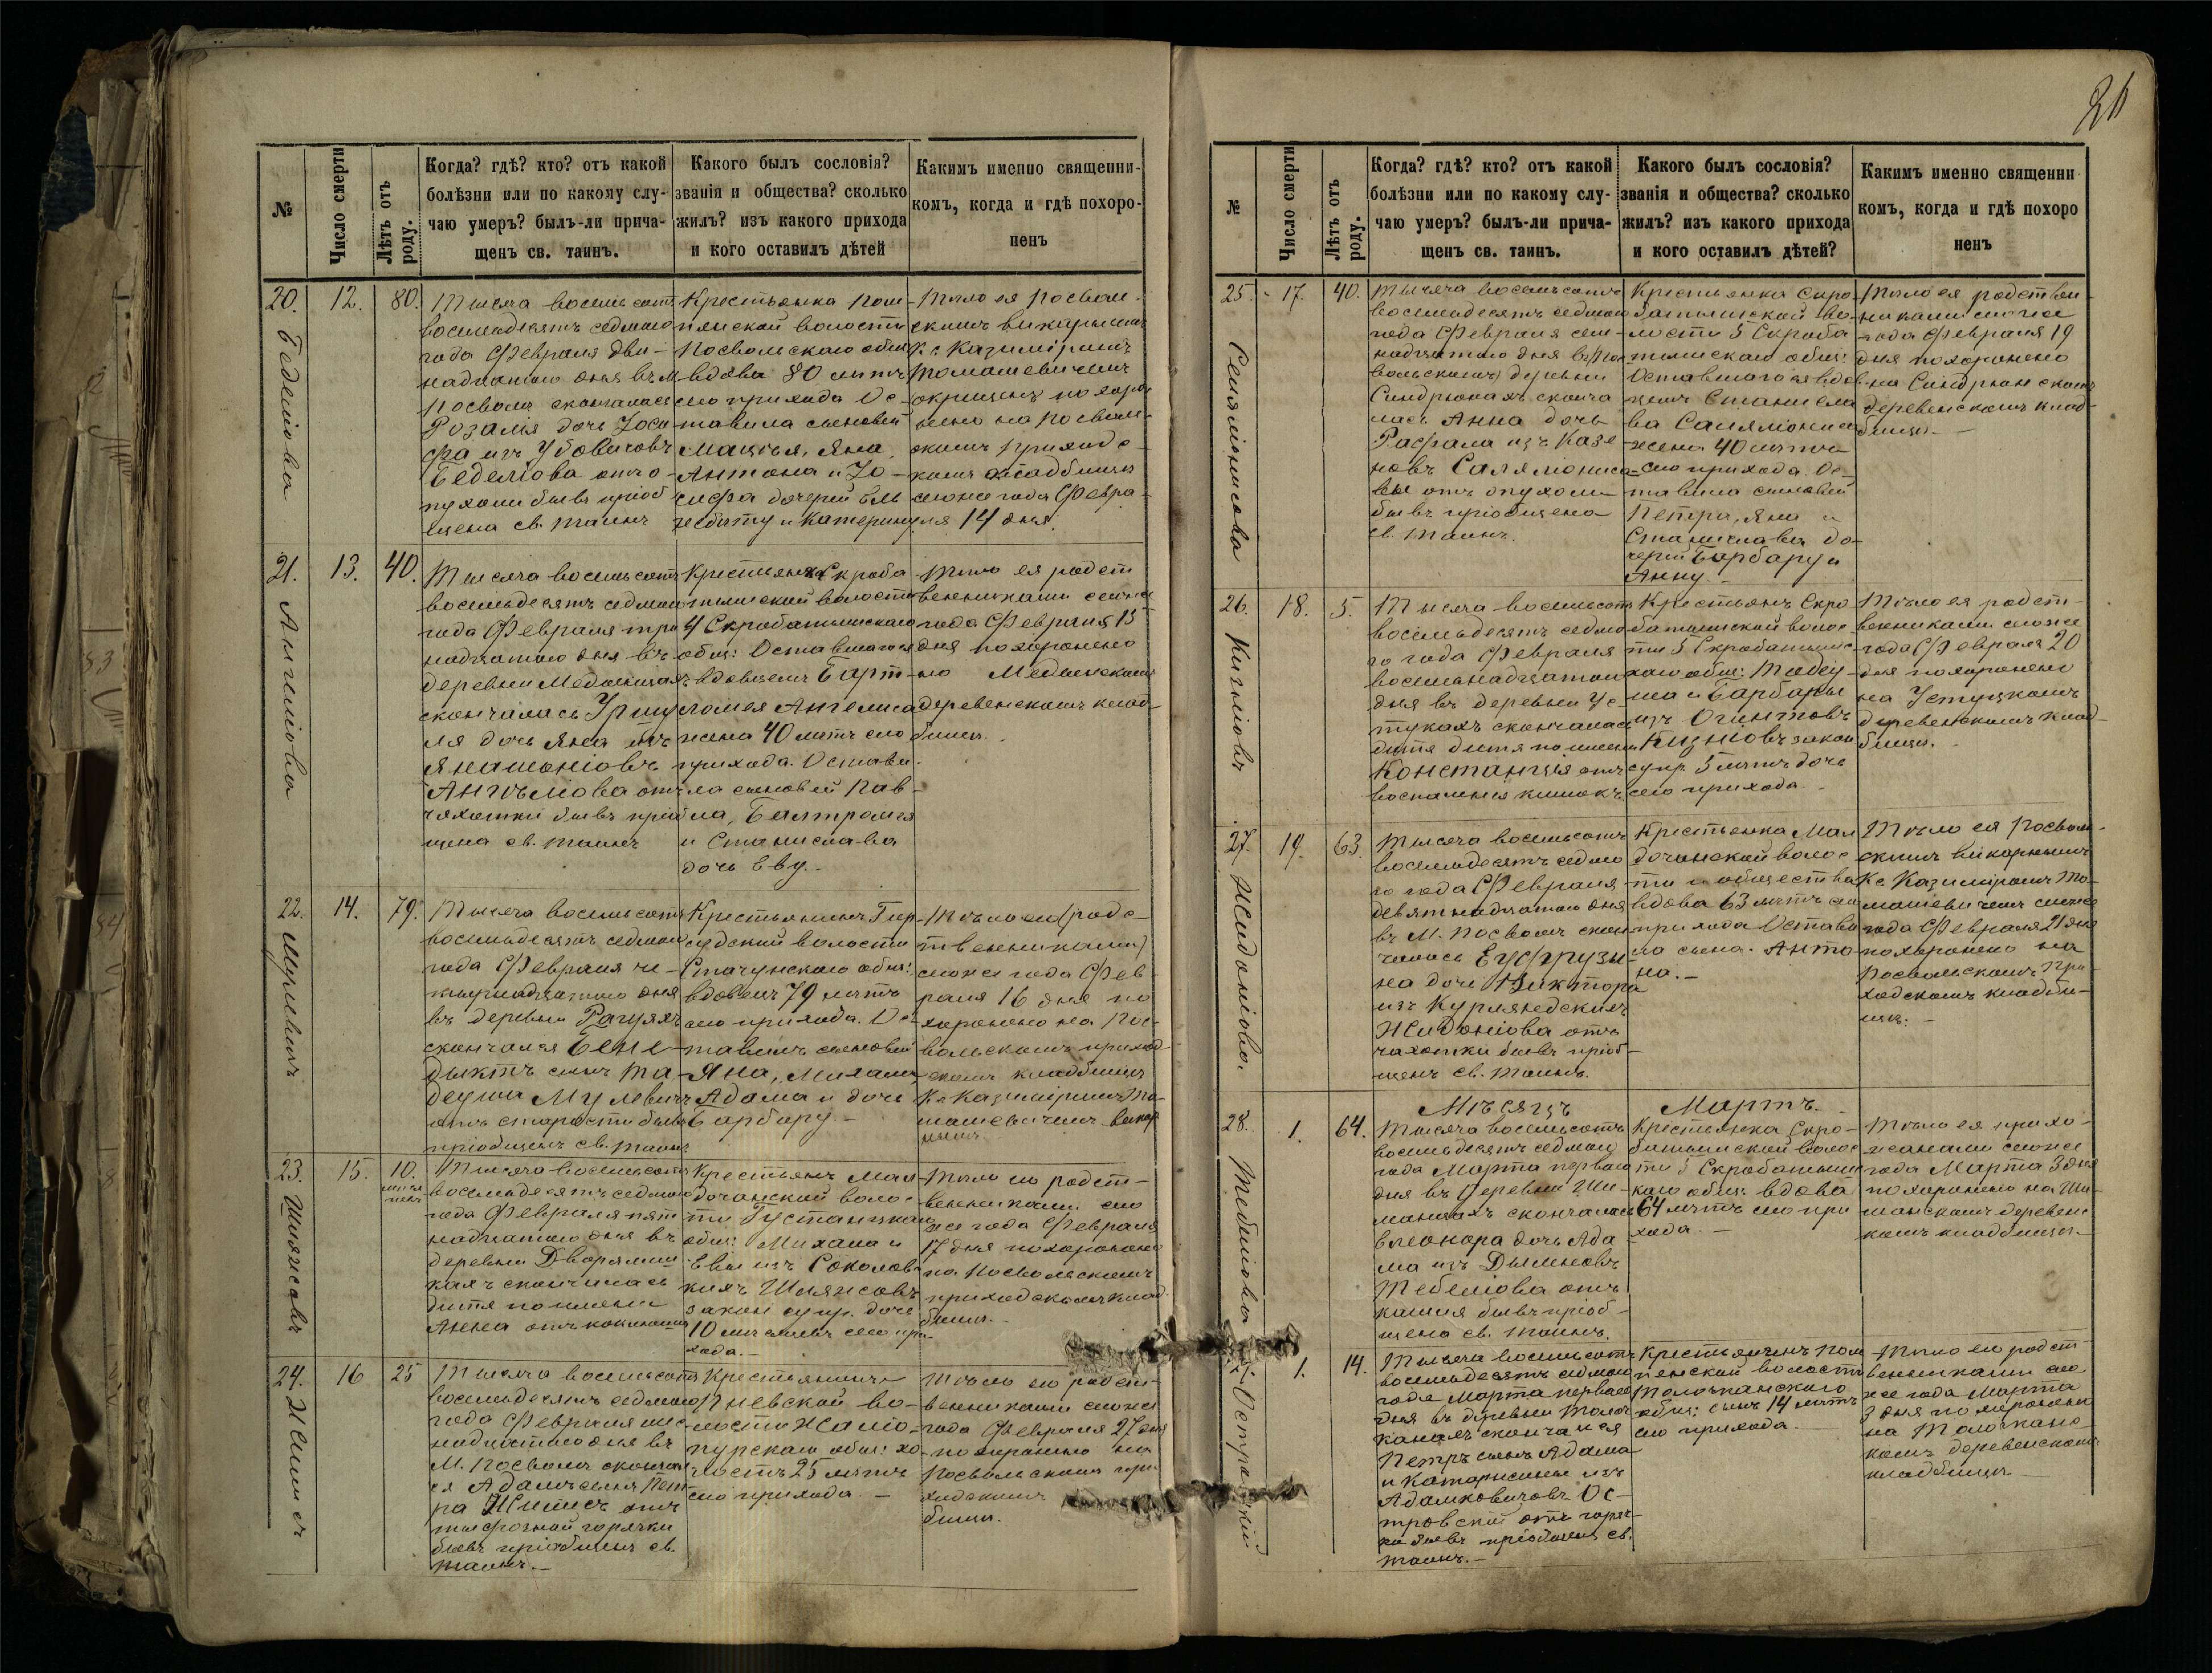 26
№
Число смерти
Лѣтъ отъ роду.
Когда? гдѣ? кто? отъ какой
болѣзни или по какому слу-
чаю умеръ? былъ-ли прича-
щенъ св. таинъ.
Какого былъ сословія?
званія и общества? сколько
жилъ? изъ какого прихода
и кого оставилъ дѣтей
Какимъ именно священни-
комъ, когда и гдѣ похоро-
ненъ
20.
Беделіова
12.
80.
Тысяча восемьсотъ
восемьдесятъ седмого
года Февраля два-
надцатого дня въ М.
Посволѣ скончалась
Розалія дочь Іоси
фа изъ Убовичовъ
Беделіова отъ о-
пухоли бывъ пріоб
щена св. таинъ
Крестьянка Пом-
пянской волости
Посвольскаго общ:
вдова 80 лѣтъ
сего прихода Ос-
тавила сыновей
Мацѣя, Яна,
Антона и Іо-
сифа дочерей Ель
жбѣту и Катерину
Тѣло ея Посволь-
скимъ викарнымъ
К: Казиміромъ
Томашевичемъ
похоро
нено на Посволь-
скомъ приходс-
комъ кладбищѣ
сего же года Февра-
ля 14 дня.
21.
Ангеліова
13.
40.
Тысяча восемьсотъ
восемьдесятъ седмого
года Февраля три
надцатого дня въ
деревни
скончалась Уршу
ля дочь Яна изъ
Янашоніовъ
Ангѣліова отъ
чахотки бывъ пріоб
щена св. таинъ
Крестьянка Скроба
тышской волости
4 Скробатышскаго
общ: Оставшагося
вдовцемъ Барт-
ломея Ангелиса
жена 40 лѣтъ сего
прихода. Остави-
ла сыновей Пав-
ла, Балтромея
и Станислава
дочь Еву.-
Тѣло ея родст
венниками сего же
года Февраля 15
дня похоронено
на
деревенскомъ клад-
бищѣ.
22.
Мулевичъ
14.
79.
Тысяча восемьсотъ
восемьдесятъ седмого
года Февраля че-
тырнадцатого дня
въ деревни Рагуяхъ
скончался Бене-
дыктъ сынъ Та-
деуша Мулевичъ
отъ старости бывъ
пріобщенъ св. таинъ
Крестьянинъ Гир-
судской волости
Стачунскаго общ:
вдовецъ 79 лѣтъ
сего прихода. Ос-
тавилъ сыновей
Яна, Михаила,
Адама и дочь
Барбару -
Тѣло его (родс-
твенниками)
сего же года Фев-
раля 16 дня по
хоронено на Пос-
вольскомъ приход-
скомъ кладбищѣ
К: Казиміромъ То-
машевичемъ викар
нымъ.
23.
Шляжевъ
15.
10.
мѣся
цевъ
Тысяча восемьсотъ
восемьдесятъ седмого
года Февраля пят
надцатого дня въ
деревни Дворали
кахъ скончалась
дитя по имени
Анна отъ коклюша
Крестьянъ Мал
дочанской волос-
ти Густаицкаго
общ: Михаила и
Евы изъ Соколовс
кихъ Шляжевъ
закон: супр. дочь
10 мѣсяцевъ сего при-
хода.-
Тѣло ея родст-
венниками сего
же года Февраля
17 дня похоронено
на Посвольскомъ
приходскомъ клад-
бищѣ.-
24.
16
25
Тысяча восемьсотъ
восемьдесятъ седмого
года Февраля шес
надцатого дня въ
М. Посволѣ скончал
ся Адамъ сынъ Пет
ра отъ
тифозной горячки
бывъ пріобщенъ св.
таинъ.-
Крестьянинъ
Пневской во-
лости
общ: хо-
лостъ 25 лѣтъ
сего прихода. -
Тѣло его родст-
венниками сего же
года Февраля 27 дня
похоронено на
Посвольскомъ при-
ходскомъ
бищѣ.
№
Число смерти
Лѣтъ отъ роду.
Когда? гдѣ? кто? отъ какой
болѣзни или по какому слу-
чаю умеръ? былъ-ли прича-
щенъ св. таинъ.
Какого былъ сословія?
званія и общества? сколько
жилъ? изъ какого прихода
и кого оставилъ дѣтей?
Какимъ именно священни
комъ, когда и гдѣ похоро
ненъ
25.
17.
40.
Тысяча восемьсотъ
восемьдесятъ седмого
года Февраля сем-
надцатого дня въ Пос-
вольскомъ деревни
Синдріонахъ сконча
лась Анна дочь
Рафала изъ Казе-
новъ Салямониса-
вы отъ опухоли
бывъ пріобщена
св. таинъ.
Крестьянка Скро-
батышской во-
лости 5 Скроба
тышскаго общ:
Оставшагося вдов-
цемъ Станисла
ва Салямониса
жена 40 лѣтъ
сего прихода. Ос-
тавила сыновей
Петра, Яна и
Станислава до-
черей Барбару и
Анну.-
Тѣло ея родствен-
никами сего же
года Февраля 19
дня похоронено
на Синдріонскомъ
деревенскомъ клад-
бищѣ.-
26.
Кизліовъ
18.
5.
Тысяча восемьсотъ
восемьдесятъ седмо
го года Февраля
восемьнадцатого
дня въ деревни Ус-
тукахъ скончалась
дитя дитя по имени
Констанція отъ
воспаленія кишокъ
Крестьянъ Скро
батышской волос-
ти 5 Скробатышс
каго общ: Тадеу-
ша и Барбары
изъ Огинтовъ
Кизліовъ закон
супр. 5 лѣтъ дочь
сего прихода.-
Тѣло ея родст-
венниками сего же
года Февраля 20
дня похоронено
на Устукскомъ
деревенскомъ клад-
бищѣ.
27.
Жидоніова.
19.
63.
Тысяча восемьсотъ
восемьдесятъ седмо
го года Февраля
девятнадцатого дня
въ М. Посволѣ скон
чалась Ефрузы-
на дочь Виктора
изъ Курляндскихъ
Жидоніова отъ
чахотки бывъ пріоб-
щенъ св. таинъ.
Крестьянка Мал
дочанской волос
ти и общества
вдова 63 лѣтъ сего
прихода Остави
ла сына. Анто
на.-
Тѣло ея Посволь-
скимъ викарнымъ
К: Казиміромъ То-
машевичемъ сего же
года Февраля 21 дня
похоронено на
Посвольскомъ при-
ходскомъ кладби-
щѣ. -
Мѣсяцъ Мартъ.
28.
Тебеліова
1.
64.
Тысяча восемьсотъ
восемьдесятъ седмого
года Марта перваго
дня въ деревни Ши-
маншахъ скончалась
Елеонора дочь Ада
ма изъ Дылиновъ
Тебеліова отъ
кашля бывъ пріоб-
щена св. таинъ.
Крестьянка Скро-
батышской волос
ти 5 Скробатышс
каго общ: вдова
64 лѣтъ сего при
хода. -
Тѣло ея прихо-
жанами сего же
года Марта 3 дня
похоронено на Ши-
манскомъ деревенс
комъ кладбищѣ.-
Островскій
1.
14.
Тысяча восемьсотъ
восемьдесятъ седмого
года Марта перваго
дня въ деревни Толоч
канахъ скончался
Петръ сынъ Адама
и Катаржины изъ
Адамковичовъ Ос-
тровскій отъ горяч-
ки бывъ пріобщенъ св.
таинъ.-
Крестьянинъ Пом
пянской волости
Толочканскаго
общ: сынъ 14 лѣтъ
сего прихода.
Тѣло его родст
венниками сего
же года Марта
3 дня похоронено
на Толочканс-
комъ деревенскомъ
кладбищѣ